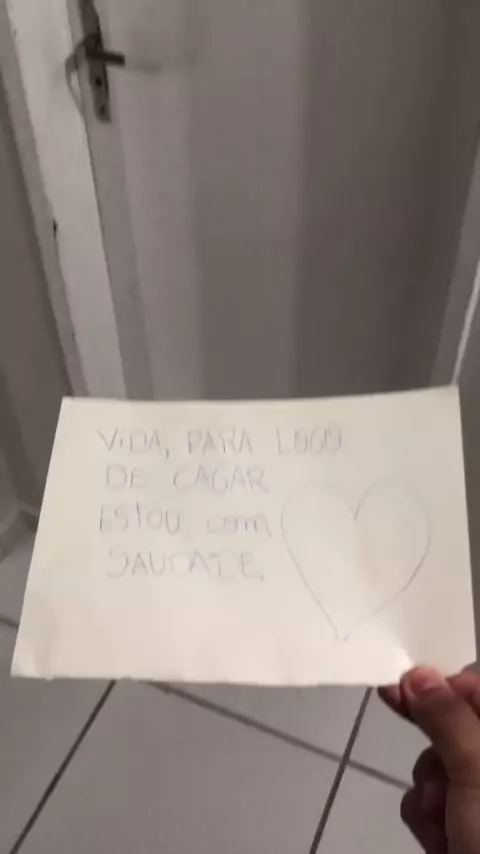 VIDA, PARA LOGO
DE CAGAR
ESTOU com
SAUDADE,